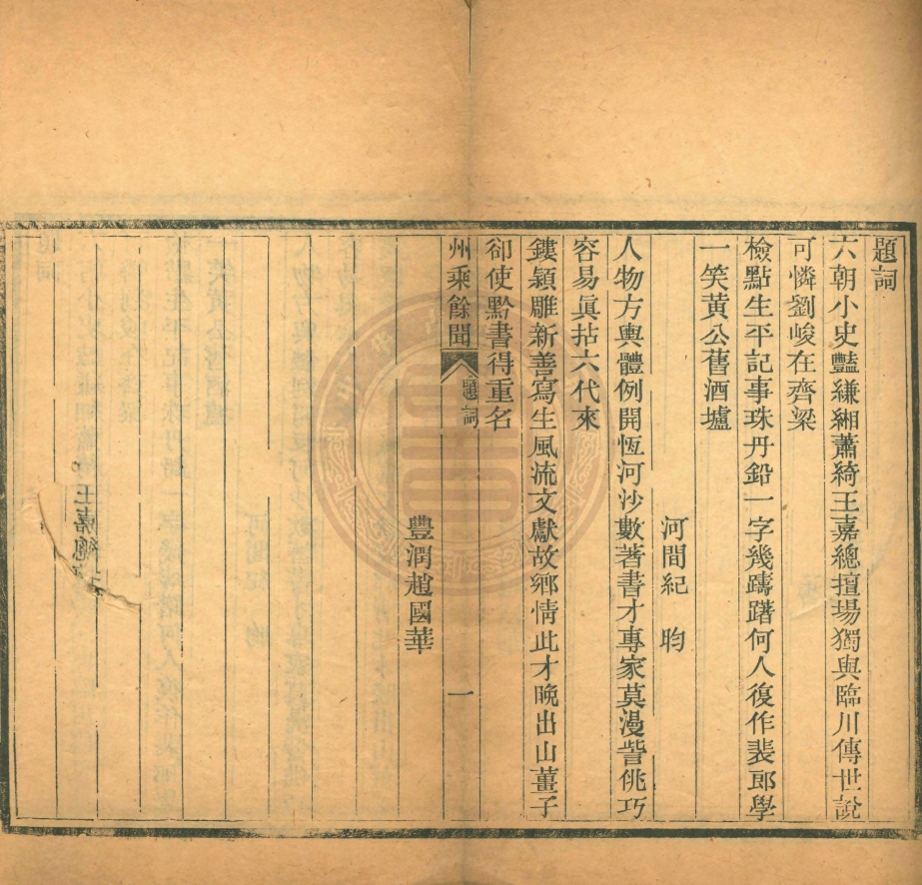 題詞
六朝小史豔縑緗蕭綺王嘉總擅場獨與臨川傳世說
可憐劉峻在齊梁
檢點生平記事珠丹鉛一字幾躊躇何人復作裴郎學
一笑黃公舊酒壚
河間紀昀
人物方輿體例開恆河沙數著書才專家莫漫訾佻巧
容易眞拈六代來
鏤穎雕新善寫生風流文獻故鄉情此才晚出山薑子
卻使黔書得重名
州乘餘聞
題詞
一
豐潤趙國華
王嘉總